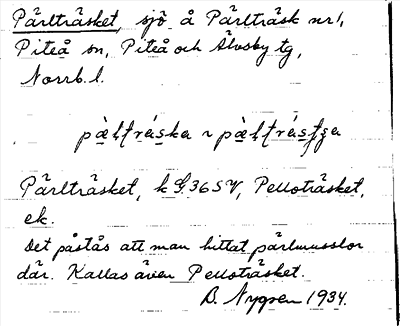 Pärlträsket, sjö å Pärlträsk nr 1,
Piteå sn, Piteå och Älvsby tg,
Norrb. l.
Pärlträsket, Pelloträsket,
ek.
Det påstås att man hittat pärlmusslor
där. Kallas även Pelloträsket.
B. Nygren 1934.